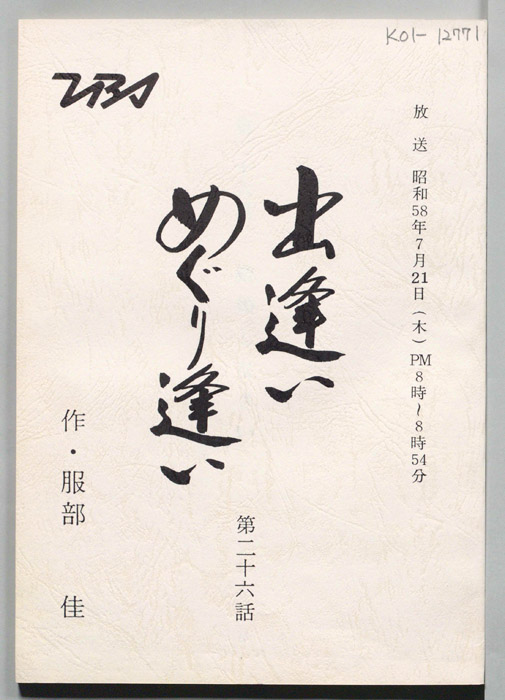 K01-12771
TBS
放送 昭和58年7月21日(木)PM8時~8時54分
出逢い
めぐり逢い
第二十六話
作・服部 佳